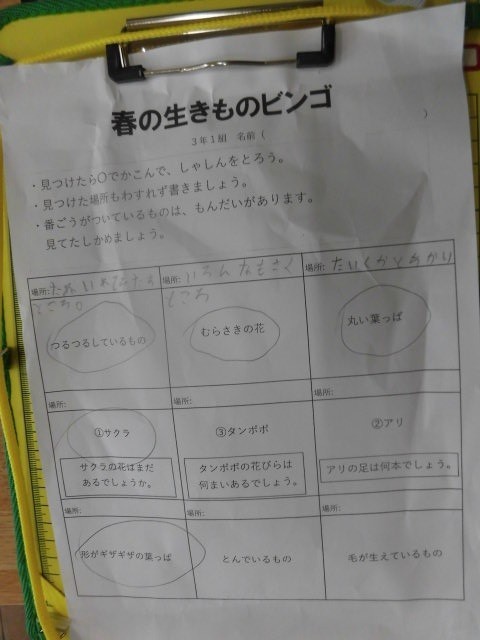 春の生きものビンゴ
3年1組 名前 ( )
・見つけたら〇でかこんで、しゃしんをとろう。
・見つけた場所もわすれず書きましょう。
・番ごうがついているものは、もんだいがあります。
見てたしかめましょう。
場所:
ところ
つるつるしているもの
場所:いろんなもさく
ところ
むらさきの花
場所:たいくかんとあかり
丸い葉っぱ
場所:
①サクラ
サクラの花はまだ
あるでしょうか。
場所:
③タンポポ
タンポポの花びらは
何まいあるでしょう。
場所:
②アリ
アリの足は何本でしょう。
場所:
形がギザギザの葉っぱ
場所:
とんでいるもの
場所:
毛が生えているもの